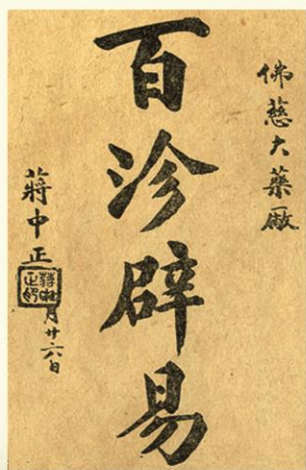 佛慈大藥廠
百沴辟易
蔣中正
蔣中正印
月廿六日